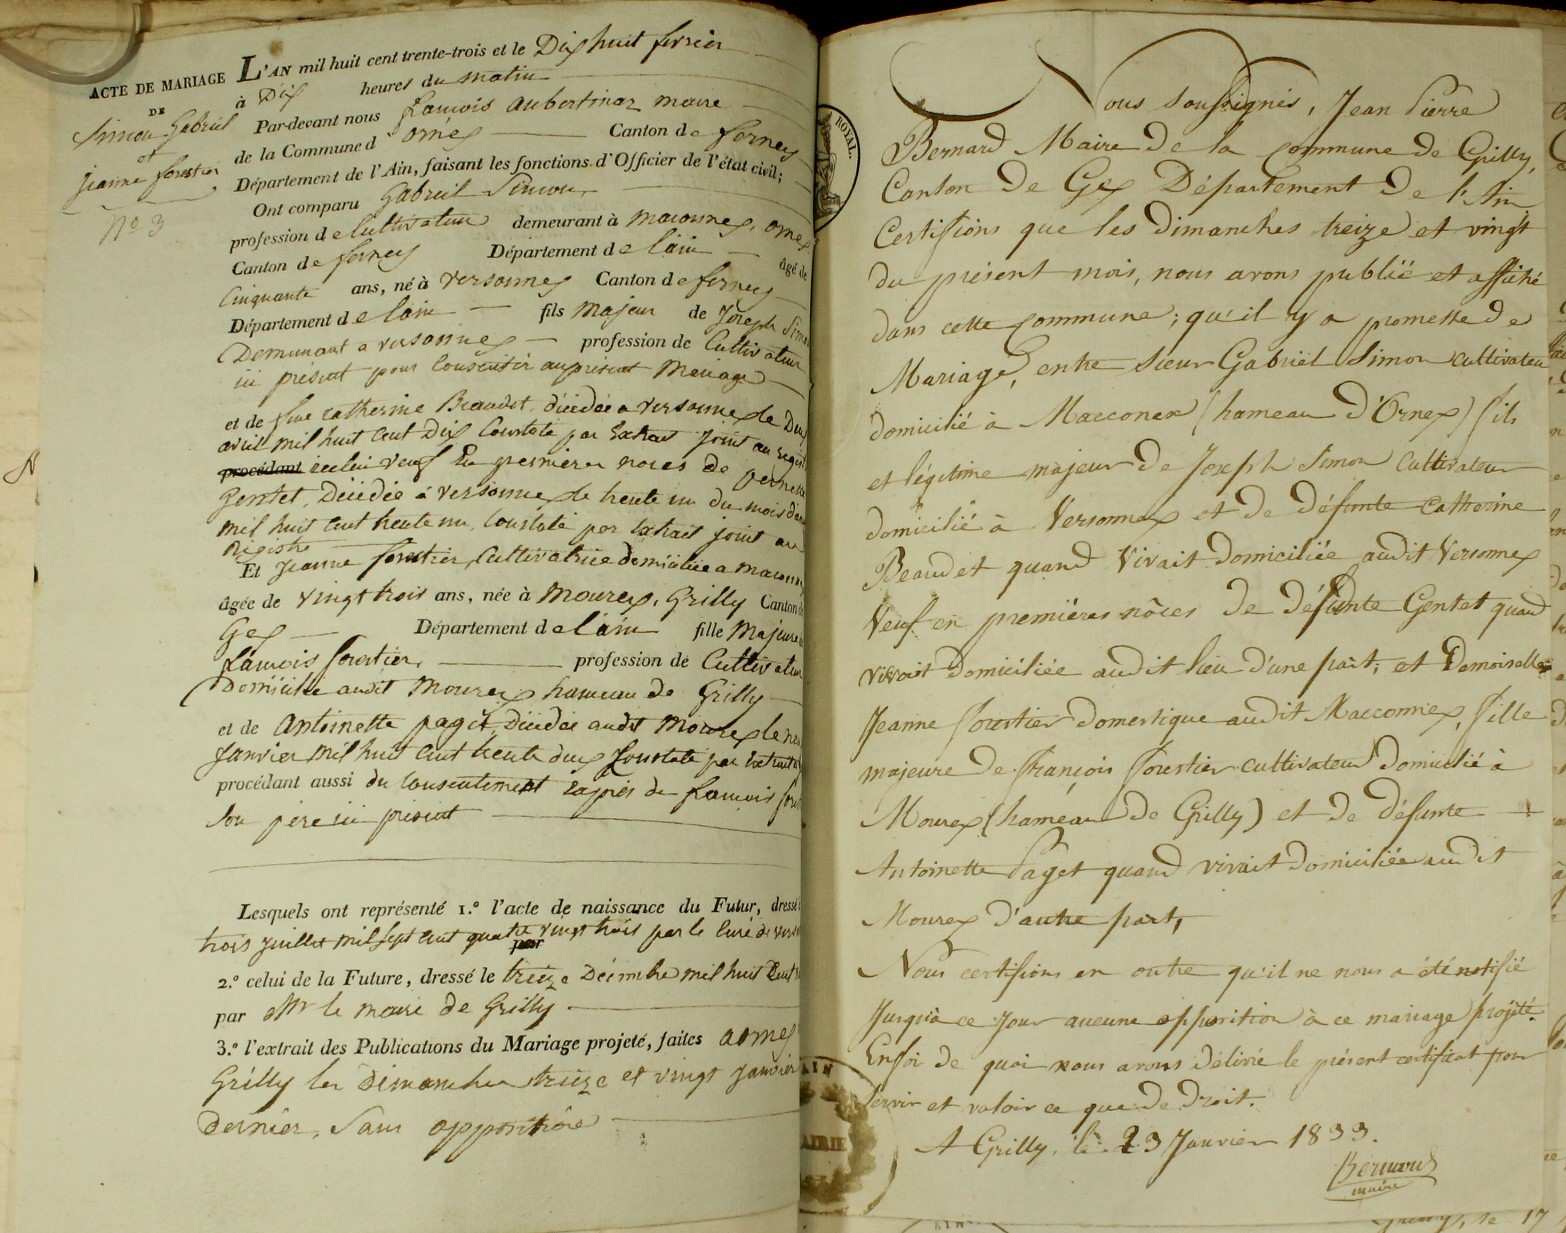 ACTE DE MARIAGE
DE
Simon Gabriel
et
Jeanne forestier
N° 3
L'AN mil huit cent trente-trois et le Dix huit fevrier
à Dix heures du matin
Par-devant nous françois aubertinaz maire
de la Commune d'ornex Canton de ferney
Département de l'Ain, faisant les fonctions d'Officier de l'état civil;
Ont comparu Gabriel Simon
profession de Cultivateur demeurant à maconnex, ornex
Canton de ferney Département de lain âgé de
Cinquante ans, né à versonnex Canton de ferney
Département de lain fils majeur de Joseph Simon
Demeurant a versonnex profession de Cultivateur
ici présent pour Consentir au présent Mariage
et de feue catherine Beaudet, décédée a versonnex le Deux
avril mil huit cent Dix Constaté par Extrait joint au registre
procédant icelui veuf En premieres noces de pernette
Gentet, Décédée à versonnex le trente un du mois
mil huit cent trente un, Constaté par Extrait joint au
Registre
Et Jeanne forestier, Cultivatrice domiciliée a maconnex
âgée de vingt trois ans, née à Mourex, Grilly Canton de
Gex Département de lain fille Majeure
françois forestier, profession de Cultivateur
Domicilié audit Mourex hameau de Grilly
et de Antoinette paget, Décédée audit Mourex le
Janvier mil huit cent trente deux Constaté par Extrait
procédant aussi du Consentement exprès de françois
son père ici présent
Lesquels ont représenté 1.° l'acte de naissance du Futur, dressé
trois Juillet mil sept cent quatre vingt trois par le Curé de
par
2.° celui de la Future, dressé le treize Décembre mil huit Cent
par Mr le maire de Grilly
3.° l'extrait des Publications du Mariage projeté, faites a ornex
Grilly les Dimanches treize et vingt Janvier
Dernier, Sans opposition
ROYAL.
Nous soussignés, Jean Pierre
Bernard Maire de la commune de Grilly,
Canton de Gex Département de l'Ain
Certifions que les dimanches treize et vingt
du présent mois, nous avons publié et affiché
dans cette commune; qu'il y a promesse de
Mariage, entre sieur Gabriël Simon cultivateur
domicilié à Macconex (hameau d'Ornex) fils
et légitime majeur de Joseph Simon Cultivateur
domicilié à Versonnex et de défunte Catherine
Beaudet quand Vivait domiciliée audit Versonnex
Veuf en premières nôces de défunte Gentet quand
vivait domiciliée audit lieu d'une part; et Demoiselle
Jeanne Forestier domestique audit Macconnex, fille
majeure de françois Forestier cultivateur domicilié à
Mourex (hameau de Grilly) et de défunte
Antoinette Paget quand vivait domiciliée audit
Mourex d'autre part,
Nous certifions en outre qu'il ne nous a été notifié
Jusqu'à ce Jour aucune opposition à ce mariage projeté.
En foi de quoi nous avons délivré le présent certificat pour
servir et valoir ce que de droit.
A Grilly, le 23 Janvier 1833.
Bernard
maire
AIN
MAIRIE
le 17